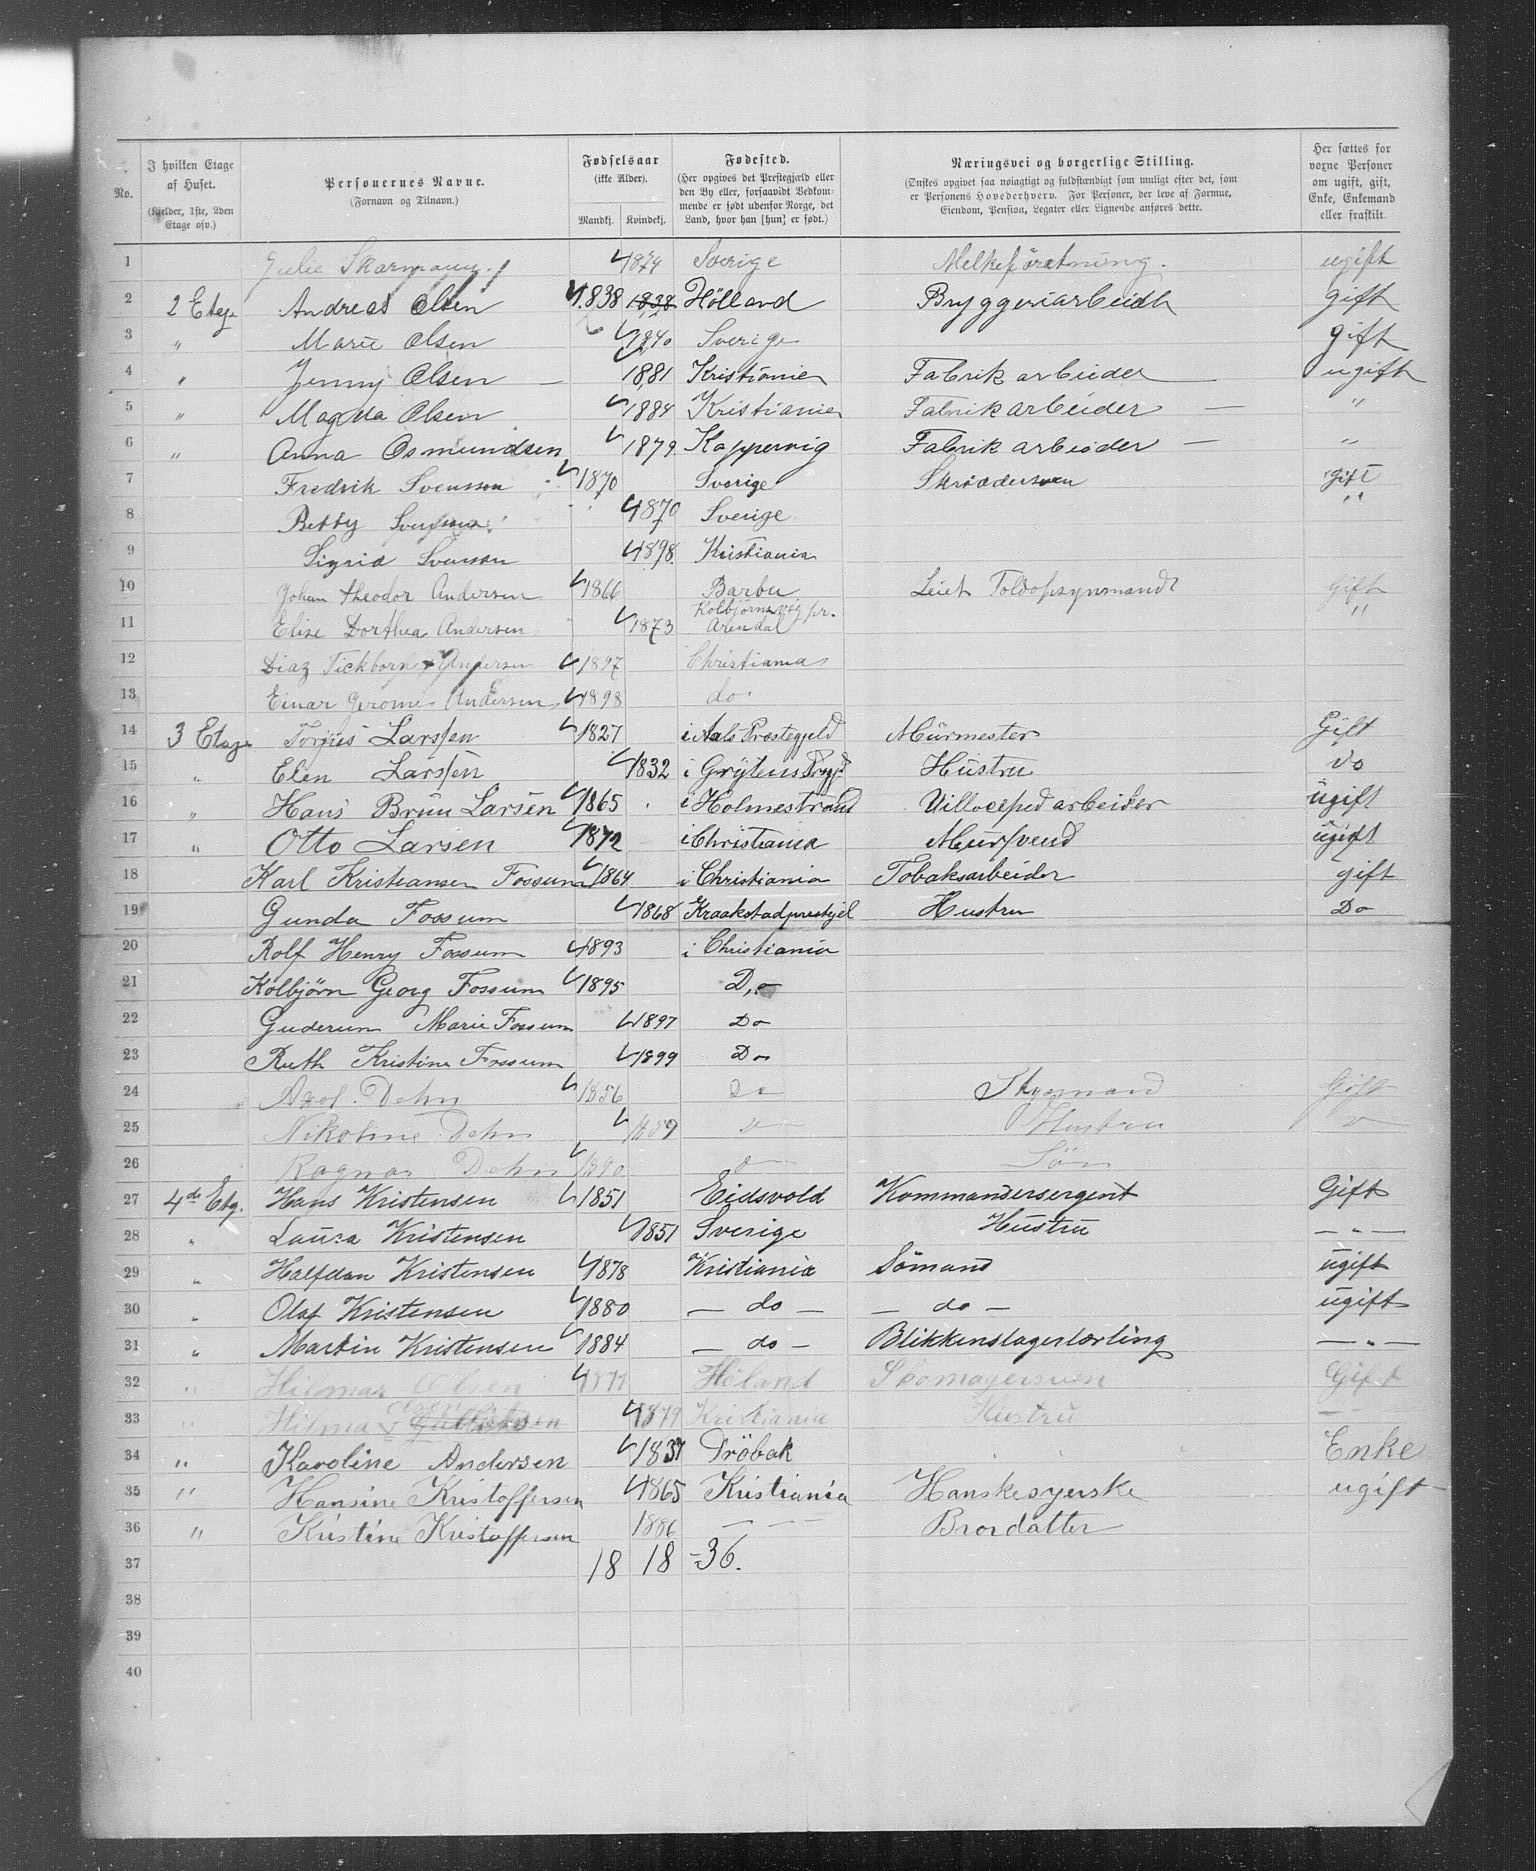 No. | I hvilken Etage af Huset. (Kjelder, 1ste, 2den Etage osv.) | Personernes Navne. (Fornavn og Tilnavn.) | Fødselsaar (ikke Alder). Mandkj. Kvindekj. | Fødested. (Her opgives det Prestegjæld eller den By eller, forsaavidt Vedkommende er født udenfor Norge, det Land, hvor han [hun] er født.) | Næringsvei og borgerlige Stilling. (Ønskes opgivet saa nøiagtigt og fuldstændigt som muligt efter det, som er Personens Hovederhverv. For Personer, der leve af Formue, Eiendom, Pension, Legater eller Lignende anføres dette.) | Her sættes for voxne Personer om ugift, gift, Enke, Enkemand eller fraskilt.
1 Julie Skarmann 1874 Sverige Melkeforetning. ugift
2 2 Etage Andreas Olsen 1838 1838 Hölland Bryggeriarbeide gift
3 " Marie Olsen 1840 Sverige gift
4 " Jenny Olsen — 1881 Kristiania Fabrik arbeider — ugift
5 " Magda Olsen 1884 Kristiania Fabrik arbeider — "
6 " Anna Osmundsen 1879 Koppervig Fabrik arbeider — "
7 Fredrik Svensson 1870 Sverige Skrædersven gift
8 Betty Svensson 1870 Sverige "
9 Sigrid Svenson 1898 Kristiania
10 Johan Theodor Andersen 1866 Barbu Leiet Toldopsynsmandt Gift
11 Elise Dorthea Andersen 1873 Kolbjørnsvig pr. Arendal "
12 Diaz Tickborne Andersen 1897 Christiania
13 Einar Gerome Andersen 1898 do
14 3 Etage Torjus Larssen 1827 i Aals Præstegjeld Mürmester Gift
15 " Elen Larssen 1832 i Grytens Hüstru do
16 " Hans Brün Larsen 1865 i Holmestrand arbeider ügift
17 " Otto Larsen 1872 i Christiania Mursvend ügift
18 Karl Kristiansen Fossum 1864 i Christiania Tobaksarbeider gift
19 Gunda Fossum 1868 Kraakstadprestgjel Hustru Do
20 Rolf Henry Fossum 1893 i Christiania
21 Kolbjörn Georg Fossum 1895 Do
22 Guderun Marie Fossum 1897 Do
23 Ruth Kristine Fossum 1899 Do
24 Axel Dehn 1856 Do Gift
25 Nikoline Dehn 1859 Hustru
26 Ragnar Dehn 1890 Søn
27 4de Etg. Hans Kristensen 1851 Eidsvold Kommandersergent Gift
28 " Laura Kristensen 1851 Sverige Hüstrü — " —
29 " Halfdan Kristensen 1878 Kristiania Sömand ügift
30 " Olaf Kristensen 1880 — do — — do — ugift
31 " Martin Kristensen 1884 — do — Blikkenslagerlærling — " —
32 " Hilmar Olsen 1877 Höland Skomagersven Gift
33 " Hilma Olsen 1879 Kristiania Hustrü —
34 " Karoline Andersen 1837 Dröbak Enke
35 " Hansine Kristoffersen 1865 Kristiania Hanskesyerske ugift
36 " Kristine Kristoffersen 1886 — — — Brordatter
37 18 18 =36.
38
39
40